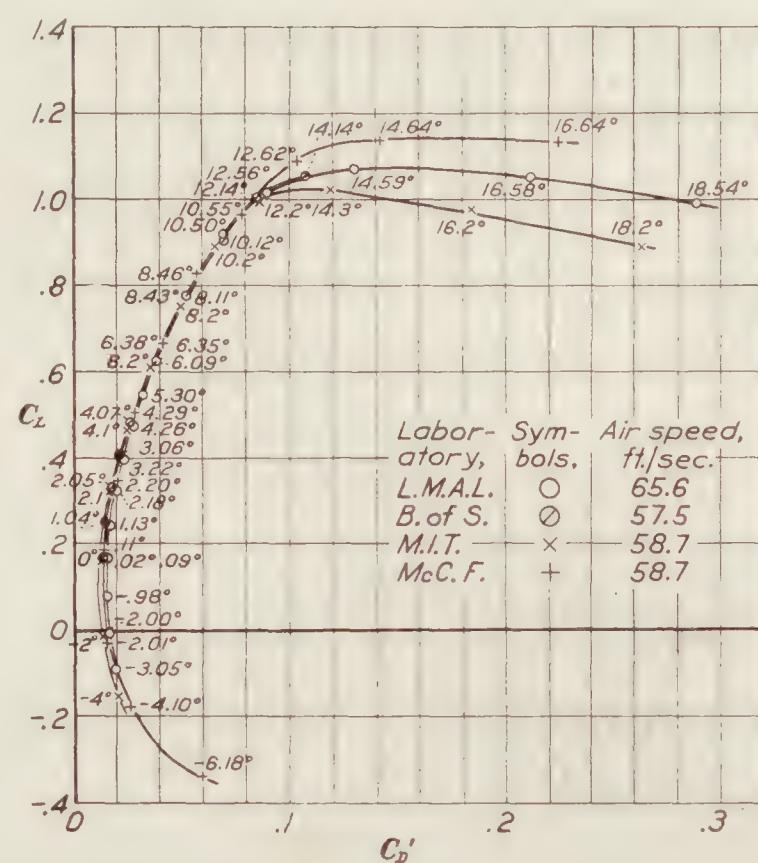 1.4
1.2
1.0
.8
.6
C_L
.4
.2
0
-.2
-.4
0
.1
.2
.3
C_D'
14.14° 14.64° 16.64°
12.62°
12.56°
12.14° 14.59° 16.58° 18.54°
10.55° 12.2° 14.3°
10.50° 10.12° 16.2° 18.2°
10.2°
8.46°
8.43° 8.11°
8.2°
6.38° 6.35°
8.2° 6.09°
5.30°
4.07° 4.29°
4.1° 4.26°
3.06°
3.22°
2.05° 2.20°
2.1 2.18°
1.04° 1.13°
.11°
0° .02° .09°
-.98°
-2.00°
-2° -2.01°
-3.05°
-4° -4.10°
-6.18°
Labor- Sym- Air speed,
atory, bols, ft./sec.
L.M.A.L. ○ 65.6
B. of S. ⊘ 57.5
M.I.T. × 58.7
McC.F. + 58.7